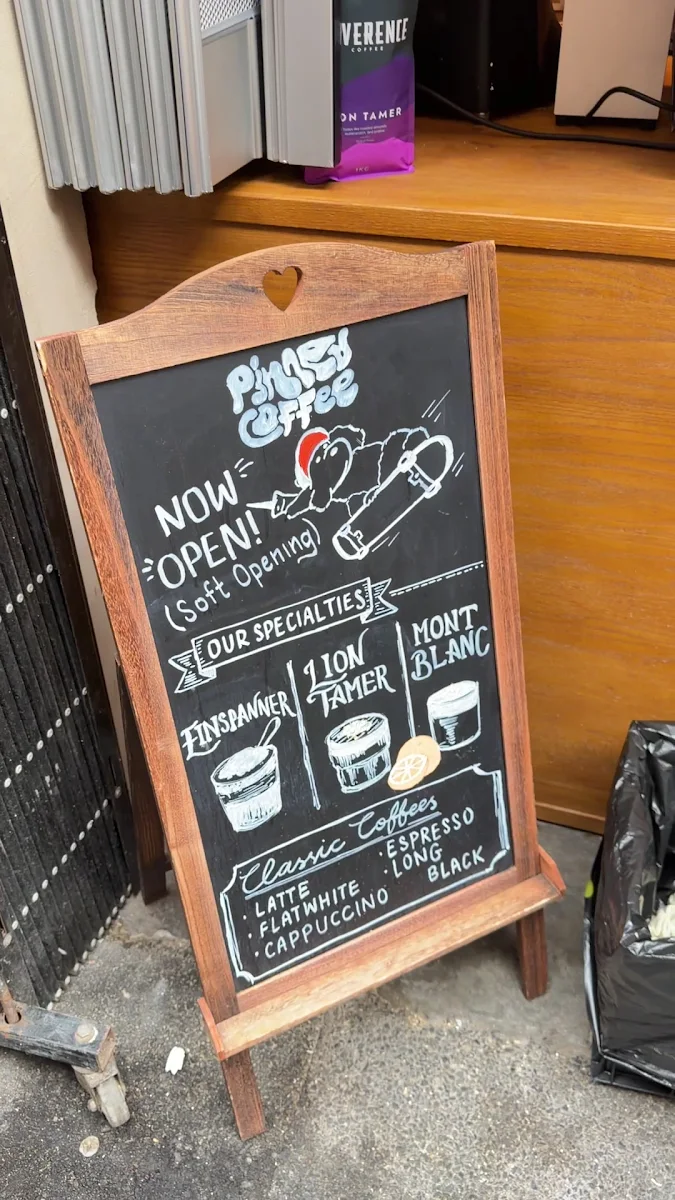 VERENCE
COFFEE
ON TAMER
Pinned
Coffee
NOW
OPEN!
(Soft Opening)
OUR SPECIALTIES
EINSPANNER
LION
TAMER
MONT
BLANC
Classic Coffees
· LATTE
· FLATWHITE
· CAPPUCCINO
· ESPRESSO
· LONG
BLACK